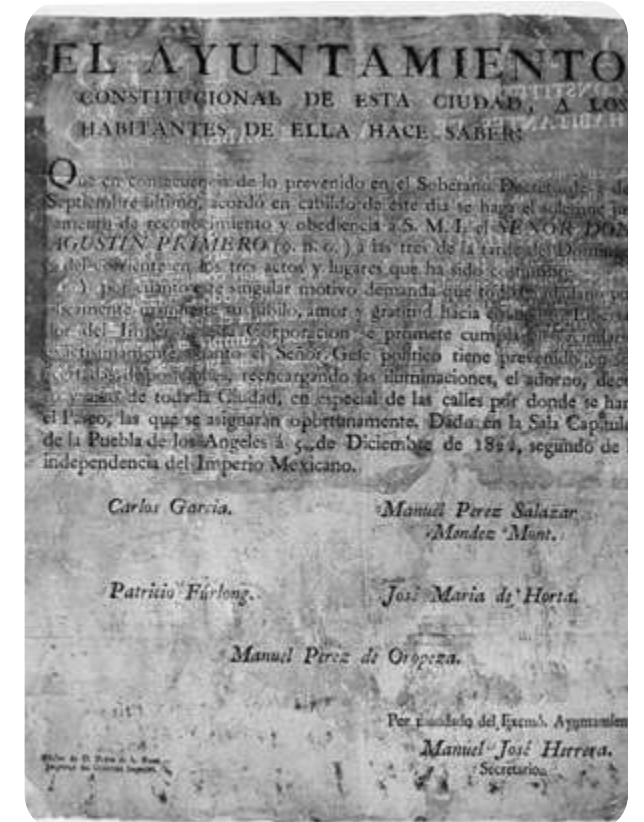 EL AYUNTAMIENTO
CONSTITUCIONAL DE ESTA CIUDAD, A LOS
HABITANTES DE ELLA HACE SABER:
Que en consecuencia de lo prevenido en el Soberano Decreto de de
Septiembre último, acordó en cabildo de este dia se haga el solemne ju-
ramento de reconocimiento y obediencia á S. M. I. el SEÑOR DON
AGUSTIN PRIMERO (q. D. g.) á las tres de la tarde del Domingo
del corriente en los tres actos y lugares que ha sido costumbre.
Y por cuanto este singular motivo demanda que todo
manifieste su júbilo, amor y gratitud hacia
del Imperio, esta Corporacion se promete cumplirán
exactisimamente cuanto el Señor Gefe político tiene prevenido en
disposiciones, reencargando las iluminaciones, el adorno,
y aseo de toda la Ciudad, en especial de las calles por donde se har
el Paseo, las que se asignarán oportunamente. Dado en la Sala Capitula
de la Puebla de los Angeles á 5 de Diciembre de 1822, segundo de
independencia del Imperio Mexicano.
Carlos Garcia.
Manuel Perez Salazar
Mendez Mont.
Patricio Fúrlong.
José Maria de Horta.
Manuel Perez de Oropeza.
Por mandado del Excmô. Ayuntamien
Manuel José Herrera.
Secretario.